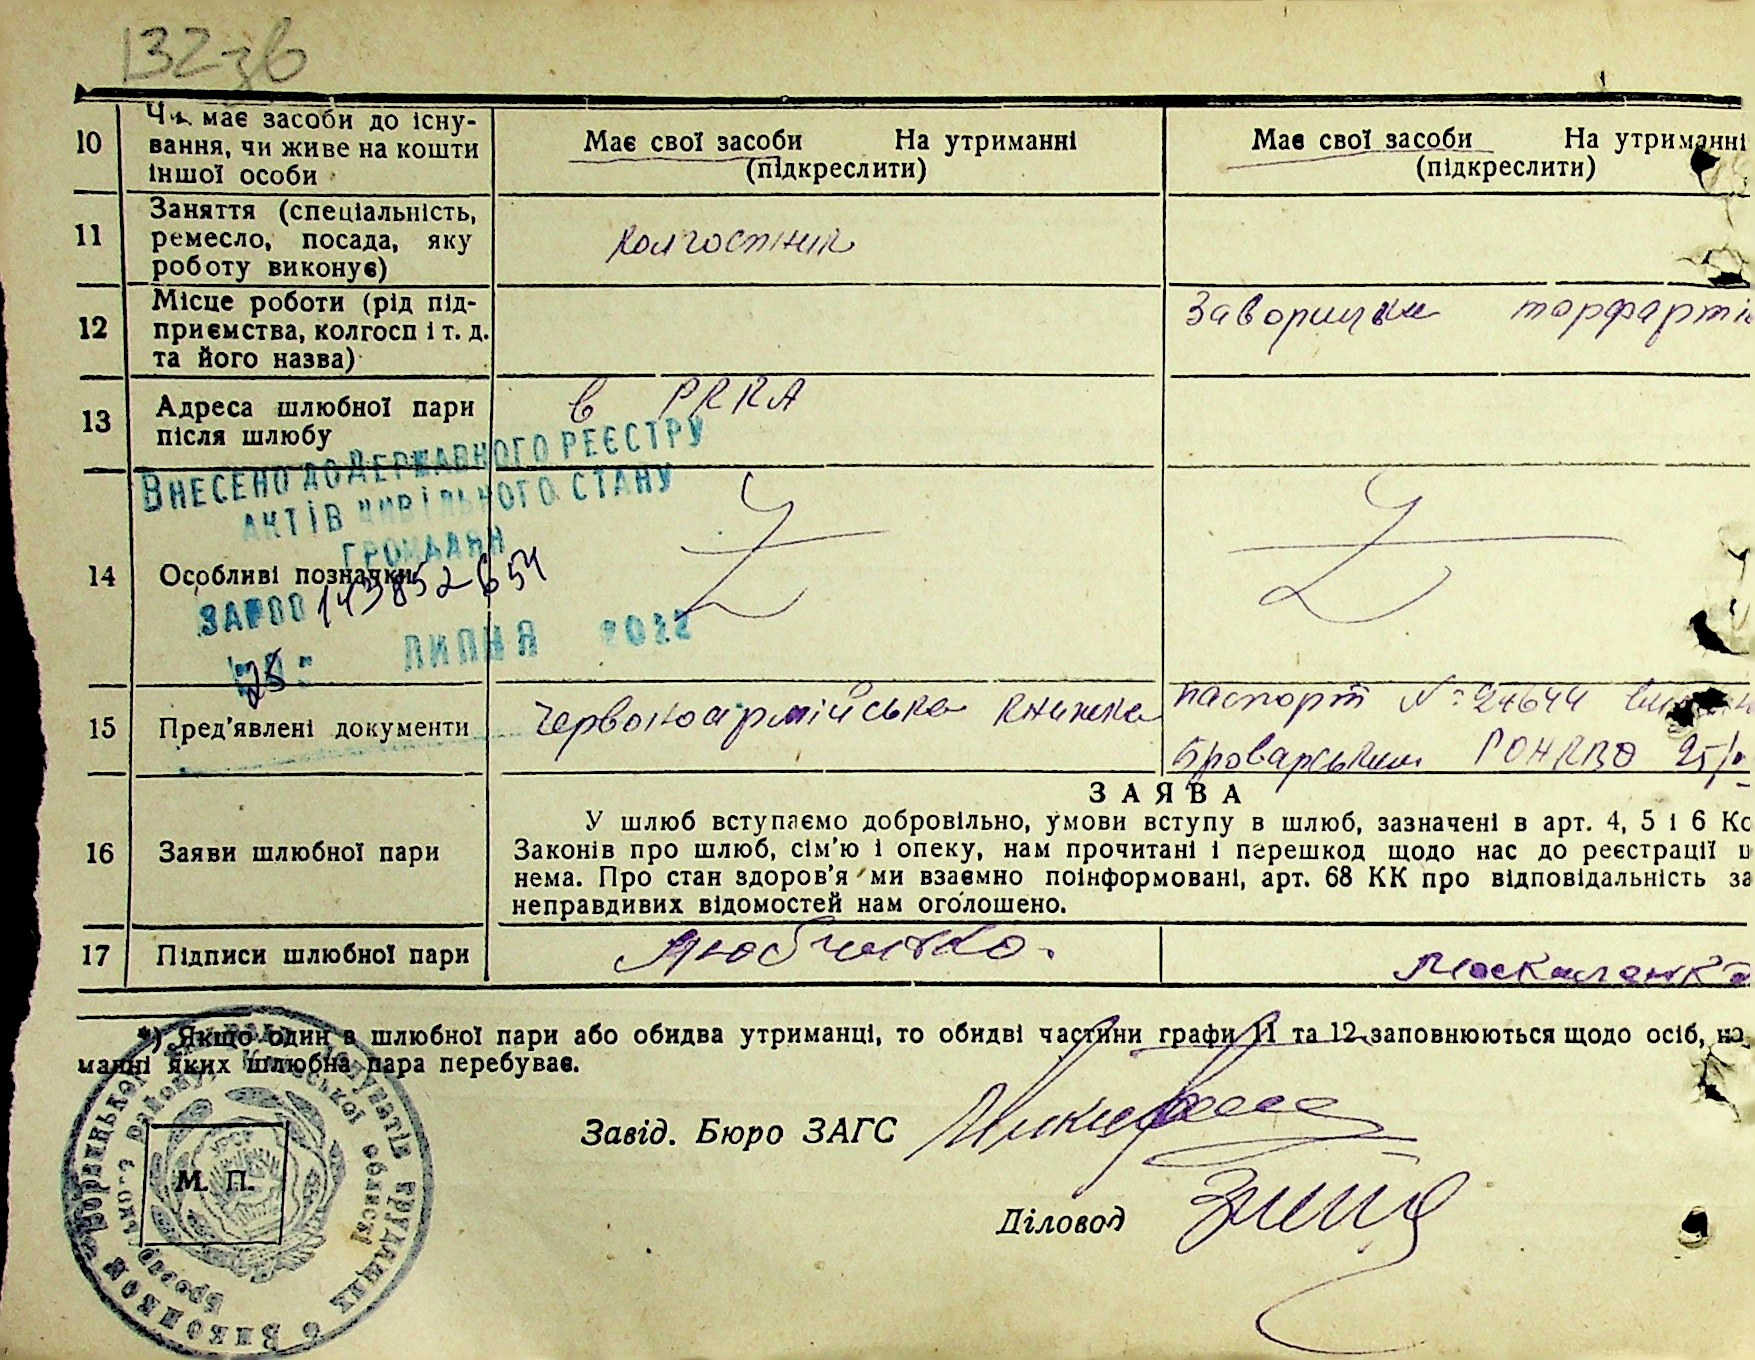 132зв
10 Чи має засоби до існу-
вання, чи живе на кошти
іншої особи
Має свої засоби На утриманні
(підкреслити)
Має свої засоби На утриманні
(підкреслити)
11 Заняття (спеціальність,
ремесло, посада, яку
роботу виконує)
колгоспник
12 Місце роботи (рід під-
приємства, колгосп і т. д.
та його назва)
Заворицьки торфарті
13 Адреса шлюбної пари
після шлюбу
в РККА
ВНЕСЕНО ДО ДЕРЖАВНОГО РЕЄСТРУ
АКТІВ ЦИВІЛЬНОГО СТАНУ
ГРОМАДЯН
14 Особливі позначки
ЗА №00 143852654
25 ЛИПНЯ 2022
15 Пред'явлені документи
Червоноармійська книжка
паспорт № 27644
Броварським РОНКВД 25/
ЗАЯВА
16 Заяви шлюбної пари
У шлюб вступаємо добровільно, умови вступу в шлюб, зазначені в арт. 4, 5 і 6 Ко
Законів про шлюб, сім'ю і опеку, нам прочитані і перешкод щодо нас до реєстрації ш
нема. Про стан здоров'я ми взаємно поінформовані, арт. 68 КК про відповідальність за
неправдивих відомостей нам оголошено.
17 Підписи шлюбної пари
Любченко.
Москаленко
*) Якщо один з шлюбної пари або обидва утриманці, то обидві частини графи 11 та 12 заповнюються щодо осіб, на
манні яких шлюбна пара перебуває.
Завід. Бюро ЗАГС
М. П.
Діловод